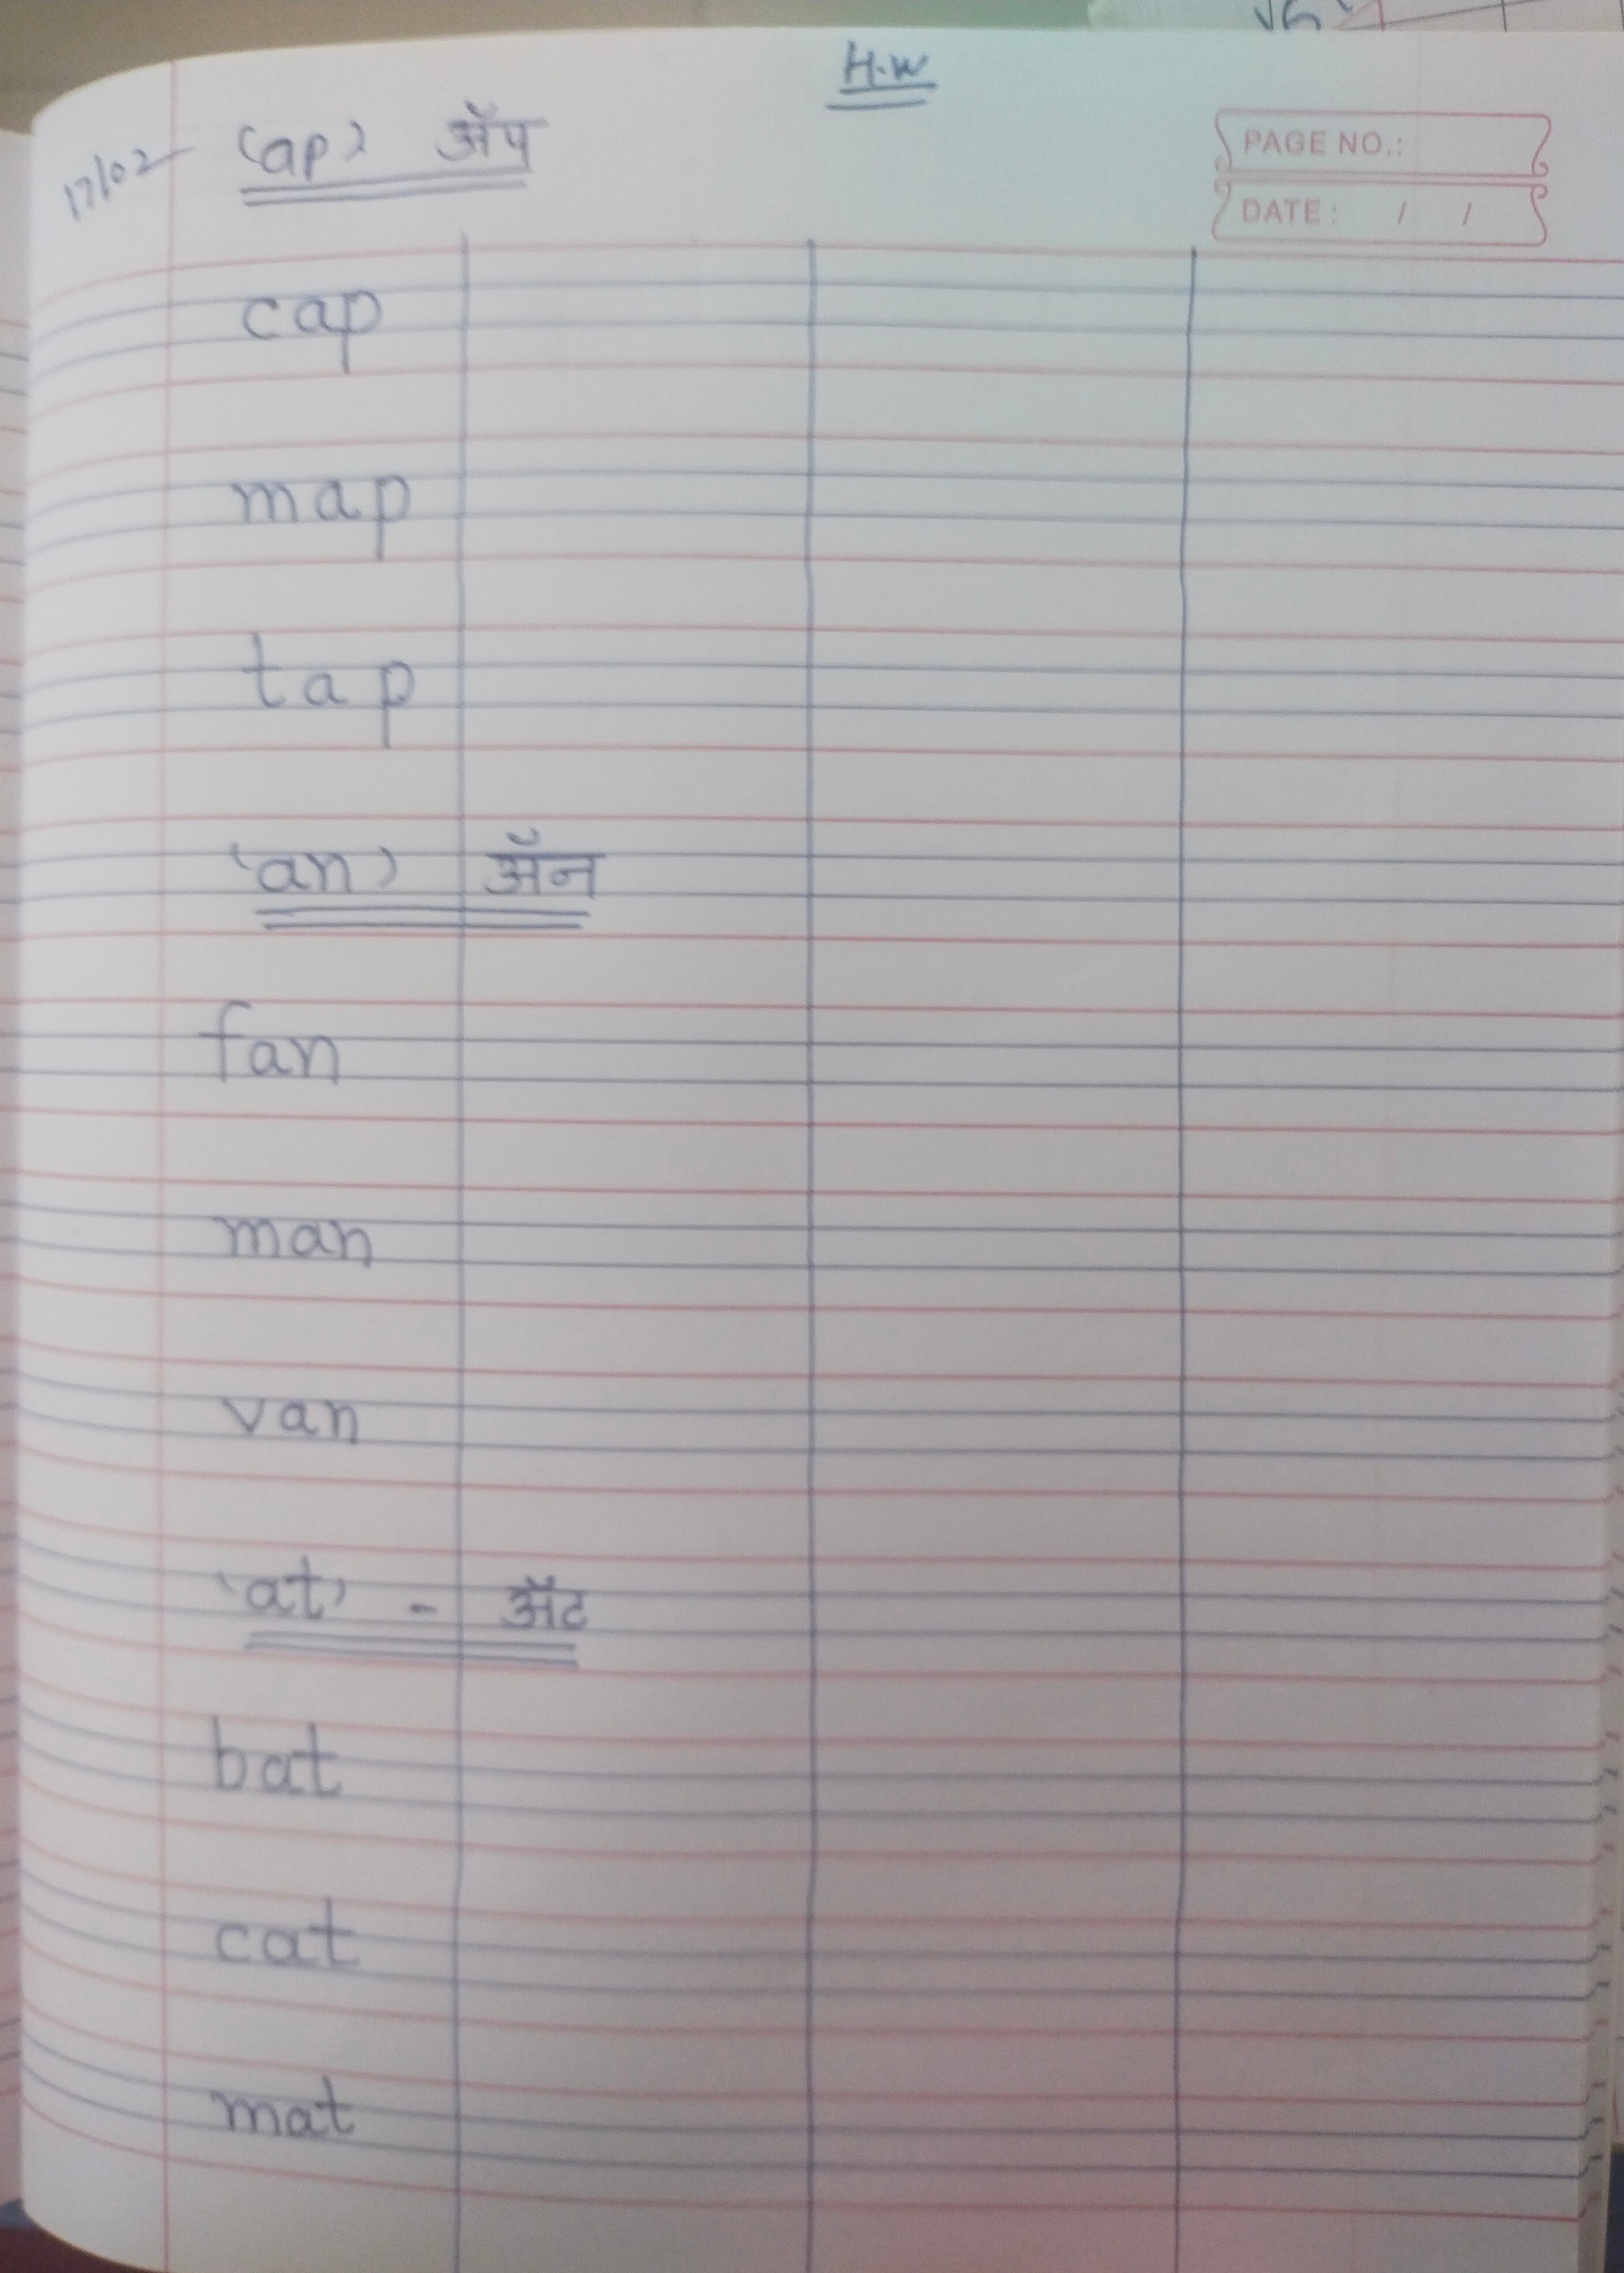 H.W
17/02 'ap' ॲप
PAGE NO.:
DATE: / /
cap
map
tap
'an' ॲन
fan
man
van
'at' - ॲट
bat
cat
mat